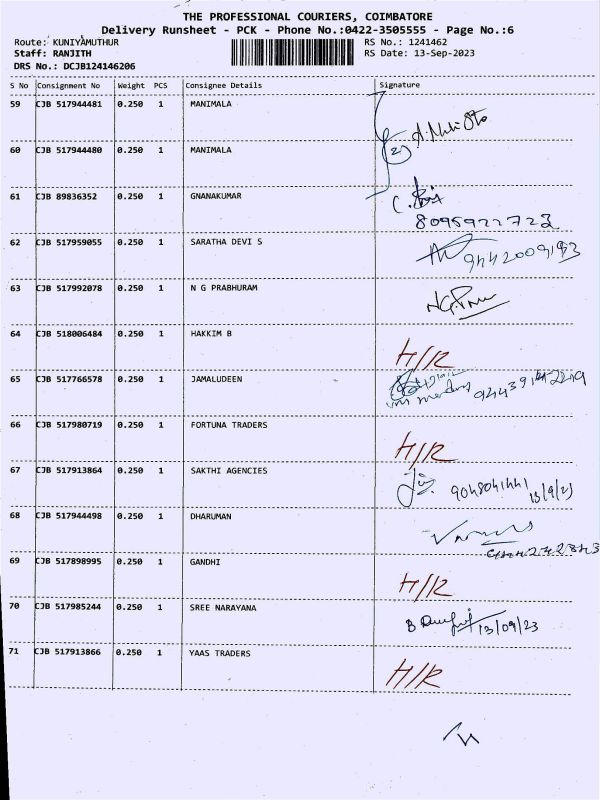 THE PROFESSIONAL COURIERS, COIMBATORE
Delivery Runsheet - PCK - Phone No.:0422-3505555 - Page No.:6
Route: KUNIYAMUTHUR RS No.: 1241462
Staff: RANJITH RS Date: 13-Sep-2023
DRS No.: DCJB124146206
S No Consignment No Weight PCS Consignee Details Signature
59 CJB 517944481 0.250 1 MANIMALA
60 CJB 517944480 0.250 1 MANIMALA
61 CJB 89836352 0.250 1 GNANAKUMAR
8095922722
62 CJB 517959055 0.250 1 SARATHA DEVI S
9442009193
63 CJB 517992078 0.250 1 N G PRABHURAM
64 CJB 518006484 0.250 1 HAKKIM B
H/R
65 CJB 517766578 0.250 1 JAMALUDEEN
66 CJB 517980719 0.250 1 FORTUNA TRADERS
H/R
67 CJB 517913864 0.250 1 SAKTHI AGENCIES
9048041441 13/9/23
68 CJB 517944498 0.250 1 DHARUMAN
69 CJB 517898995 0.250 1 GANDHI
H/R
70 CJB 517985244 0.250 1 SREE NARAYANA
13/09/23
71 CJB 517913866 0.250 1 YAAS TRADERS
H/R